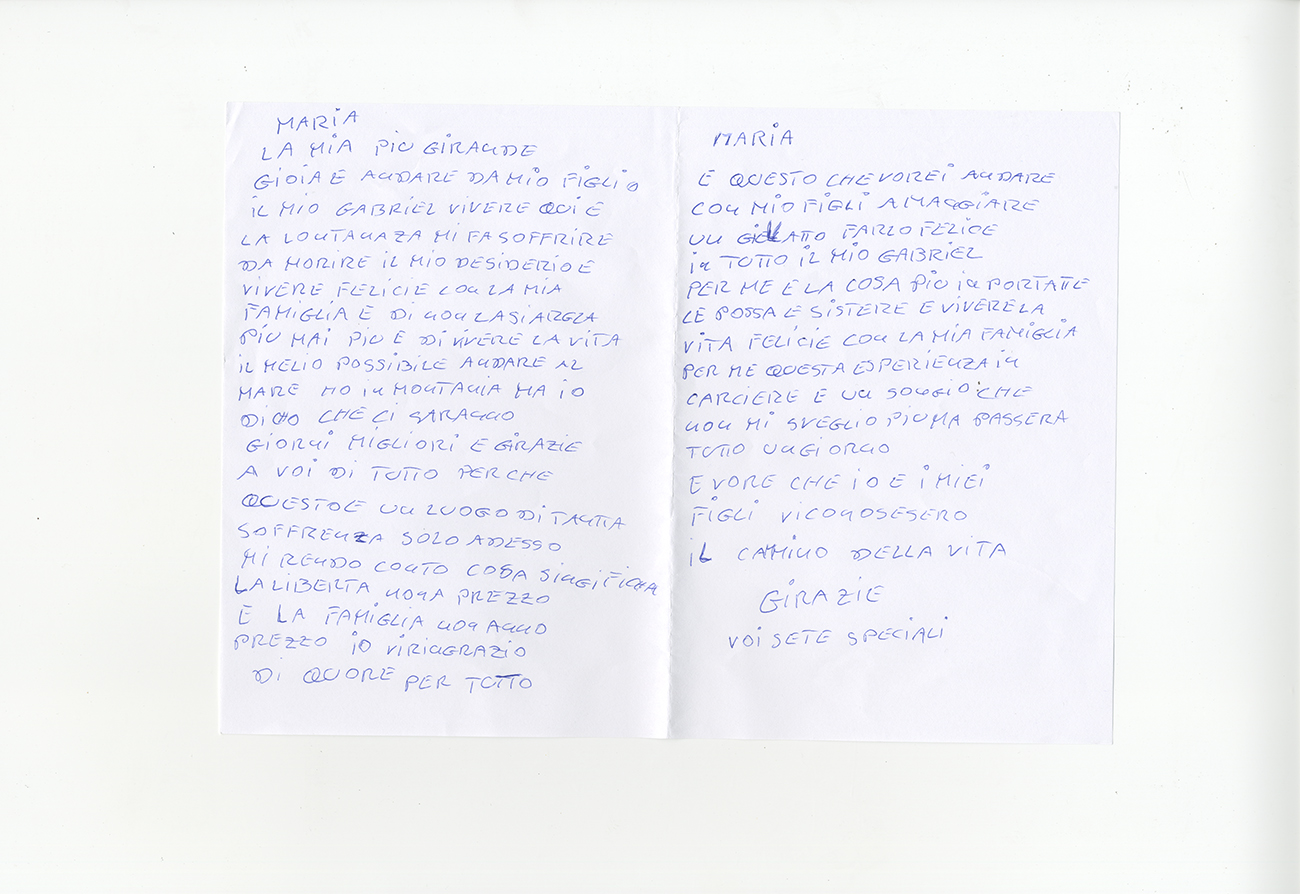 MARIA
LA MIA PIU GIRANDE
GIOIA E ANDARE DA MIO FIGLIO
IL MIO GABRIEL VIVERE QUI E
LA LONTANAZA MI FA SOFFRIRE
DA MORIRE IL MIO DESIDERIO E
VIVERE FELICIE CON LA MIA
FAMIGLIA E DI NON LASIARGLA
PIU MAI PIU E DI VIVERE LA VITA
IL MELIO POSSIBILE ANDARE AL
MARE HO IN MONTANIA MA IO
DICHO CHE CI SARANNO
GIORNI MIGLIORI E GIRAZIE
A VOI DI TUTTO PERCHE
QUESTO E UN LUOGO DI TANTA
SOFFRENZA SOLO ADESSO
MI RENDO CONTO COSA SINGIFICHA
LA LIBERTA NONA PREZZO
E LA FAMIGLIA NON ANNO
PREZZO IO VI RINGRAZIO
DI QUORE PER TUTTO
MARIA
E QUESTO CHE VOREI ANDARE
CON MIO FIGLI A MAGGIARE
UN GIELLATO FARLO FELICE
IN TUTTO IL MIO GABRIEL
PER ME E LA COSA PIU IN PORTATTE
LE POSSA E SISTERE E VIVERE LA
VITA FELICIE CON LA MIA FAMIGLIA
PER ME QUESTA ESPERIENZA IN
CARCIERE E UN SONGIO CHE
NON MI SVEGLIO PIU MA PASSERA
TUTTO UN GIORNO
E VORE CHE IO E I MIEI
FIGLI VICONOSESERO
IL CAMINO DELLA VITA
GIRAZIE
VOI SETE SPECIALI